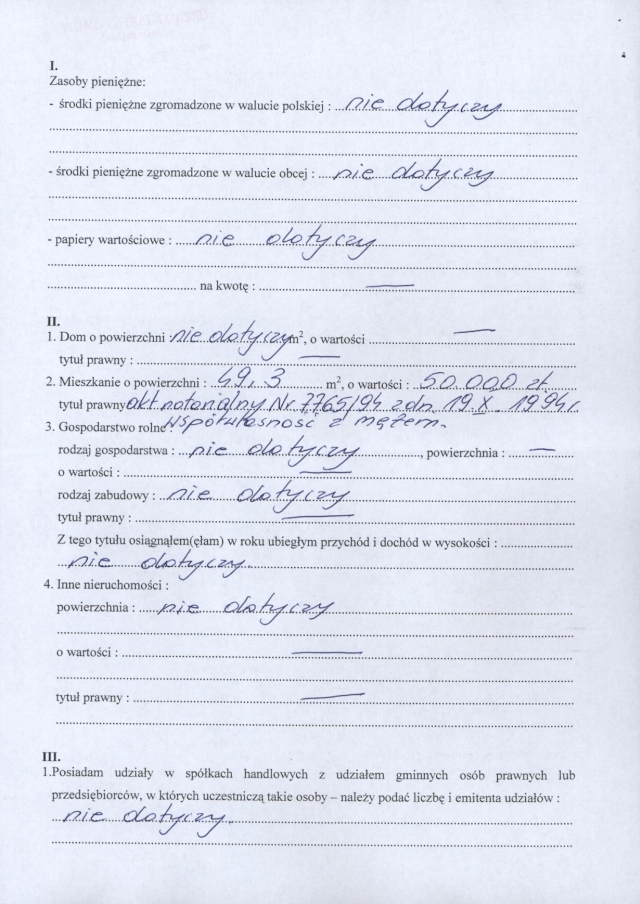 I.
Zasoby pieniężne:
- środki pieniężne zgromadzone w walucie polskiej : nie dotyczy
- środki pieniężne zgromadzone w walucie obcej : nie dotyczy
- papiery wartościowe : nie dotyczy
na kwotę : —
II.
1. Dom o powierzchni : nie dotyczy m², o wartości —
tytuł prawny : —
2. Mieszkanie o powierzchni : 49,3 m², o wartości : 50.000 zł
tytuł prawny akt notarialny Nr 7765/94 z dn. 19.X.1994r.
współwłasność z mężem.
3. Gospodarstwo rolne:
rodzaj gospodarstwa : nie dotyczy, powierzchnia : —
o wartości : —
rodzaj zabudowy : nie dotyczy
tytuł prawny : —
Z tego tytułu osiągnąłem(ęłam) w roku ubiegłym przychód i dochód w wysokości :
nie dotyczy.
4. Inne nieruchomości :
powierzchnia : nie dotyczy
o wartości : —
tytuł prawny : —
III.
1.Posiadam udziały w spółkach handlowych z udziałem gminnych osób prawnych lub
przedsiębiorców, w których uczestniczą takie osoby – należy podać liczbę i emitenta udziałów :
nie dotyczy.